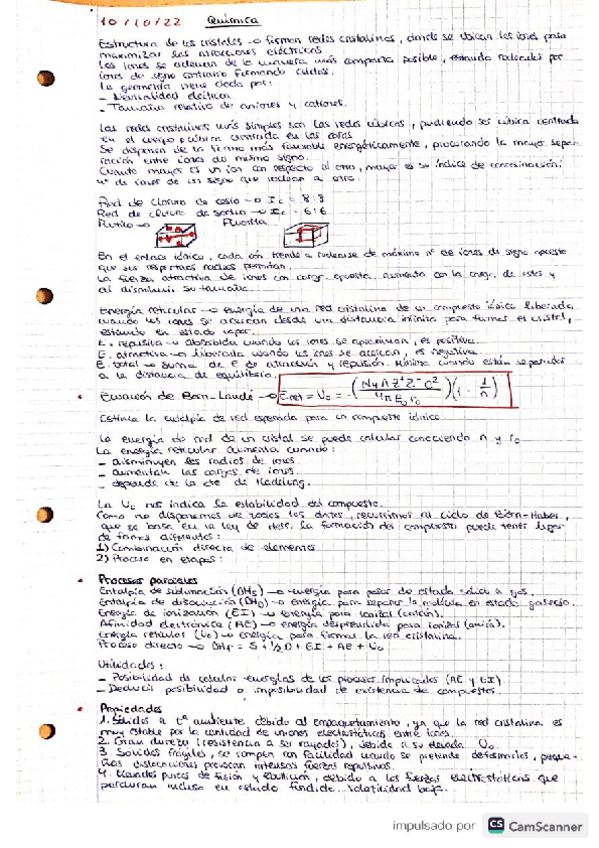 10/10/22 Química
Estructura de los cristales → forman redes cristalinas, donde se ubican los iones para
maximizar sus atracciones eléctricas
Los iones se ordenan de la manera más compacta posible, estando rodeados por
iones de signo contrario formando celdas.
La geometría viene dada por:
- Neutralidad eléctrica
- Tamaño relativo de aniones y cationes.
Las redes cristalinas más simples son las redes cúbicas, pudiendo ser cúbica centrada
en el cuerpo o cúbica centrada en las caras
Se disponen de la forma más favorable energéticamente, procurando la mayor sepa-
ración entre iones de mismo signo.
Cuanto mayor es un ion con respecto al otro, mayor es su índice de coordinación:
nº de iones de un signo que rodean a otro.
Red de cloruro de cesio → Ic = 8:8
Red de cloruro de sodio → Ic = 6:6
Rutilo → Fluorita →
En el enlace iónico, cada ión tiende a rodearse de máximo nº de iones de signo opuesto
que sus respectivos radios permitan.
La fuerza atractiva de iones con carga opuesta aumenta con la carga de estos y
al disminuir su tamaño.
Energía reticular → energía de una red cristalina de un compuesto iónico liberada
cuando los iones se acercan desde una distancia infinita para formar el cristal,
estando en estado vapor.
E. repulsiva → absorbida cuando los iones se aproximan, es positiva.
E. atractiva → liberada cuando los iones se acercan, es negativa.
E. total → suma de E de atracción y repulsión. Mínima cuando están separados
a la distancia de equilibrio.
Ecuación de Born-Landé → Eret = U0 = -(NA A Z+ Z- e²/4π E0 r0)(1 - 1/n)
Estima la entalpía de red esperada para un compuesto iónico.
La energía de red de un cristal se puede calcular conociendo n y r0
La energía reticular aumenta cuando:
- disminuyen los radios de iones.
- aumentan las cargas de iones.
- depende de la cte de Madelung.
La U0 nos indica la estabilidad del compuesto.
Como no disponemos de todos los datos, recurrimos al ciclo de Born-Haber,
que se basa en la ley de Hess. La formación del compuesto puede tener lugar
de formas diferentes:
1) Combinación directa de elementos
2) Proceso en etapas:
Procesos parciales
Entalpía de sublimación (ΔHs) → energía para pasar de estado sólido a gas.
Entalpía de disociación (ΔHD) → energía para separar la molécula en estado gaseoso.
Energía de ionización (EI) → energía para ionizar (catión).
Afinidad electrónica (AE) → energía desprendida para ionizar (anión).
Energía reticular (U0) → energía para formar la red cristalina.
Proceso directo → ΔHf = S + 1/2 D + EI + AE + U0
Utilidades:
- Posibilidad de calcular energías de los procesos implicados (AE y EI)
- Deducir posibilidad o imposibilidad de existencia de compuestos.
Propiedades
1. Sólidos a tª ambiente debido al empaquetamiento, ya que la red cristalina es
muy estable por la cantidad de uniones electrostáticas entre iones.
2. Gran dureza (resistencia a ser rayados), debida a su elevada U0
3. Sólidos frágiles, se rompen con facilidad cuando se pretende deformarlos, peque-
ñas distorsiones provocan intensas fuerzas repulsivas.
4. Elevados puntos de fusión y ebullición, debido a las fuerzas electrostáticas que
perduran incluso en estado fundido. Volatilidad baja.
impulsado por CS CamScanner